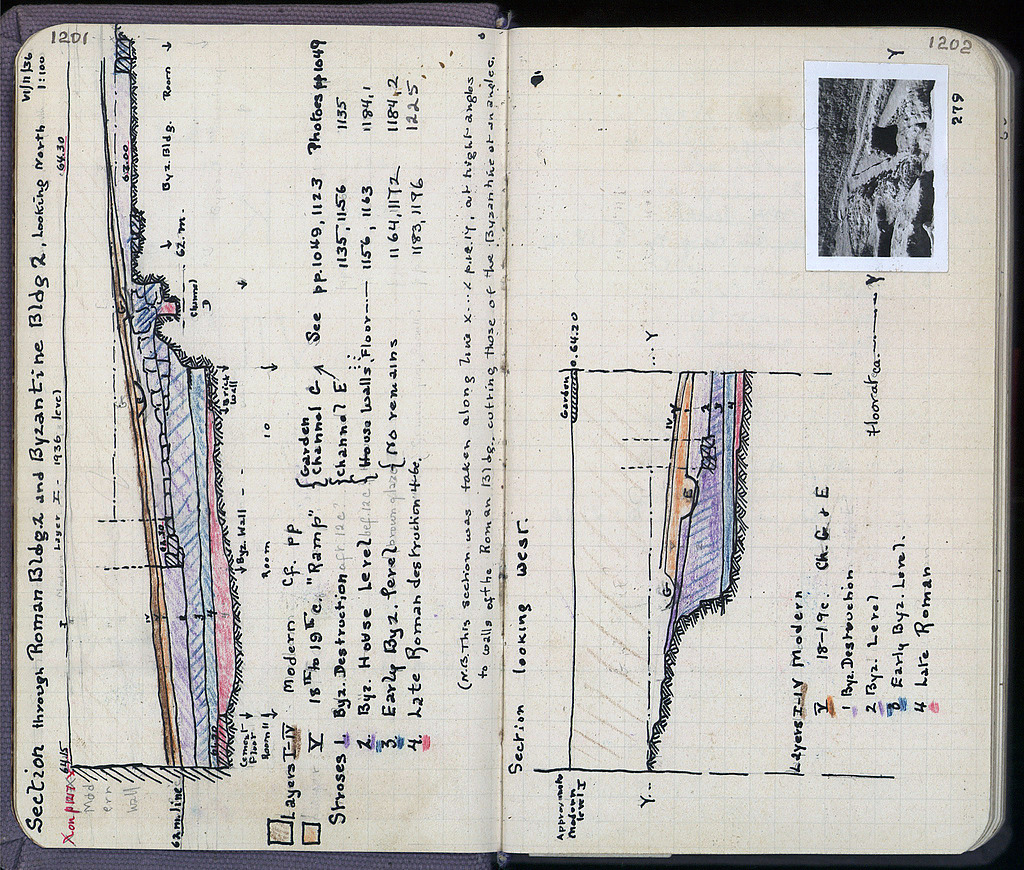 1201
VI/11/36
1:100
Section through Roman Bldg 2 and Byzantine Bldg 2, Looking North
X on p 1217 X
64.15
Layer I - 1936 level
64.30
Mod
ern
wall
62 m. line
62.00
62. m.
G
E
IV
V
1
2
3
4
Cement
Floor
Room II
Byz. Wall
Room
10
Brick
Wall
Channel
D
Byz. Bldg. Room
Layers I-IV Modern Cf. pp
V 18th to 19th c. "Ramp" { Garden
Channel G See pp. 1049, 1123 Photoes pp 1049
Stroses 1 Byz. Destruction aft 12c { Channel E 1135, 1156 1135
2. Byz. House Level bef. 12c { House Walls, Floor 1156, 1163 1184,1
3. Early Byz. Level brown glaze { No remains 1164, 1172 1184,2
4. Late Roman destruction 4-6c. 1183, 1196 1225
(N.B. This section was taken along line X...X p.ie.17, at right angles
to walls of the Roman Bldg. cutting those of the Byzantine at an angle.
1202
279
Y Y
Section looking West.
Approximate
modern
level I
Garden
64.20
Y Y
G
E
IV
V
1
2
3
4
Floor at ca.
Layers I-IV Modern
V 18-19c. Ch. G + E
1 Byz. Destruction
2 Byz. Level
3 Early Byz. Level.
4 Late Roman